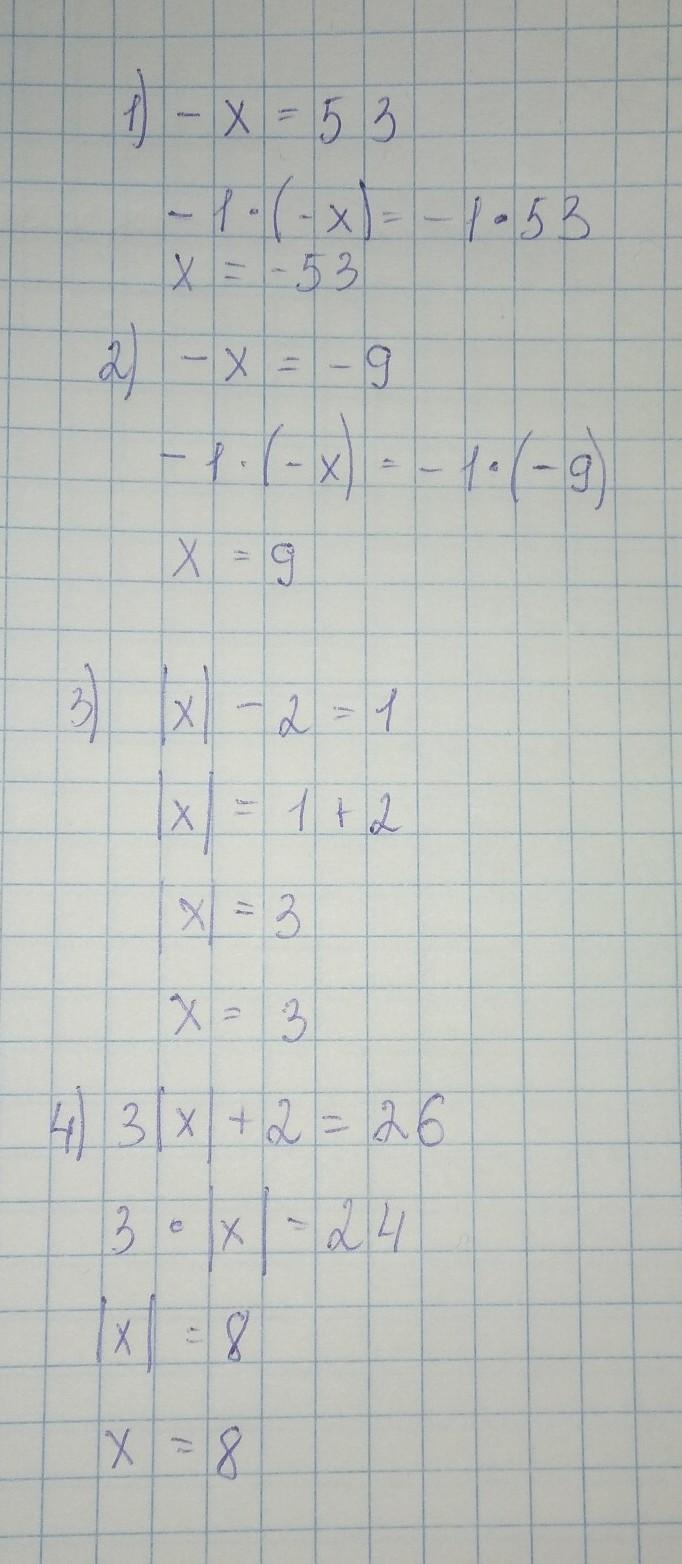 1) - x = 53
- 1 · (- x) = - 1 · 53
x = - 53
2) - x = - 9
- 1 · (- x) = - 1 · (- 9)
x = 9
3) |x| - 2 = 1
|x| = 1 + 2
|x| = 3
x = 3
4) 3|x| + 2 = 26
3 · |x| = 24
|x| = 8
x = 8